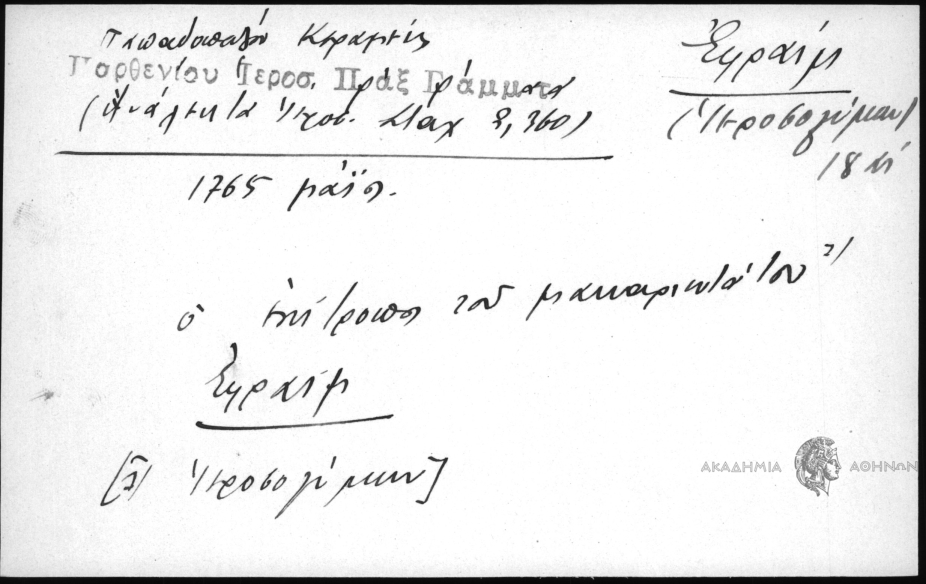 Παπαδοπούλου Κεραμέως
Παρθενίου Ἱεροσ. Πράξ Γράμματα
(Ἀνάλεκτα Ἱεροσ. Σταχ
Ἐφραίμ
(Ἱεροσολύμων)
18 αἰ
1765 μάϊος.
ὁ ἐπίτροπος τοῦ μακαριωτάτου
Ἐφραίμ
Ἱεροσολύμων]
ΑΚΑΔΗΜΙΑ ΑΘΗΝΩΝ